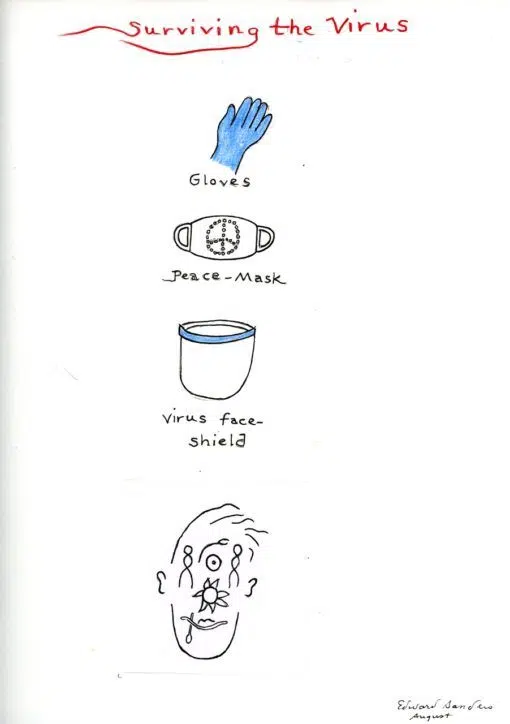 Surviving the Virus
Gloves
Peace-Mask
Virus face-
shield
Edward Sanders
August